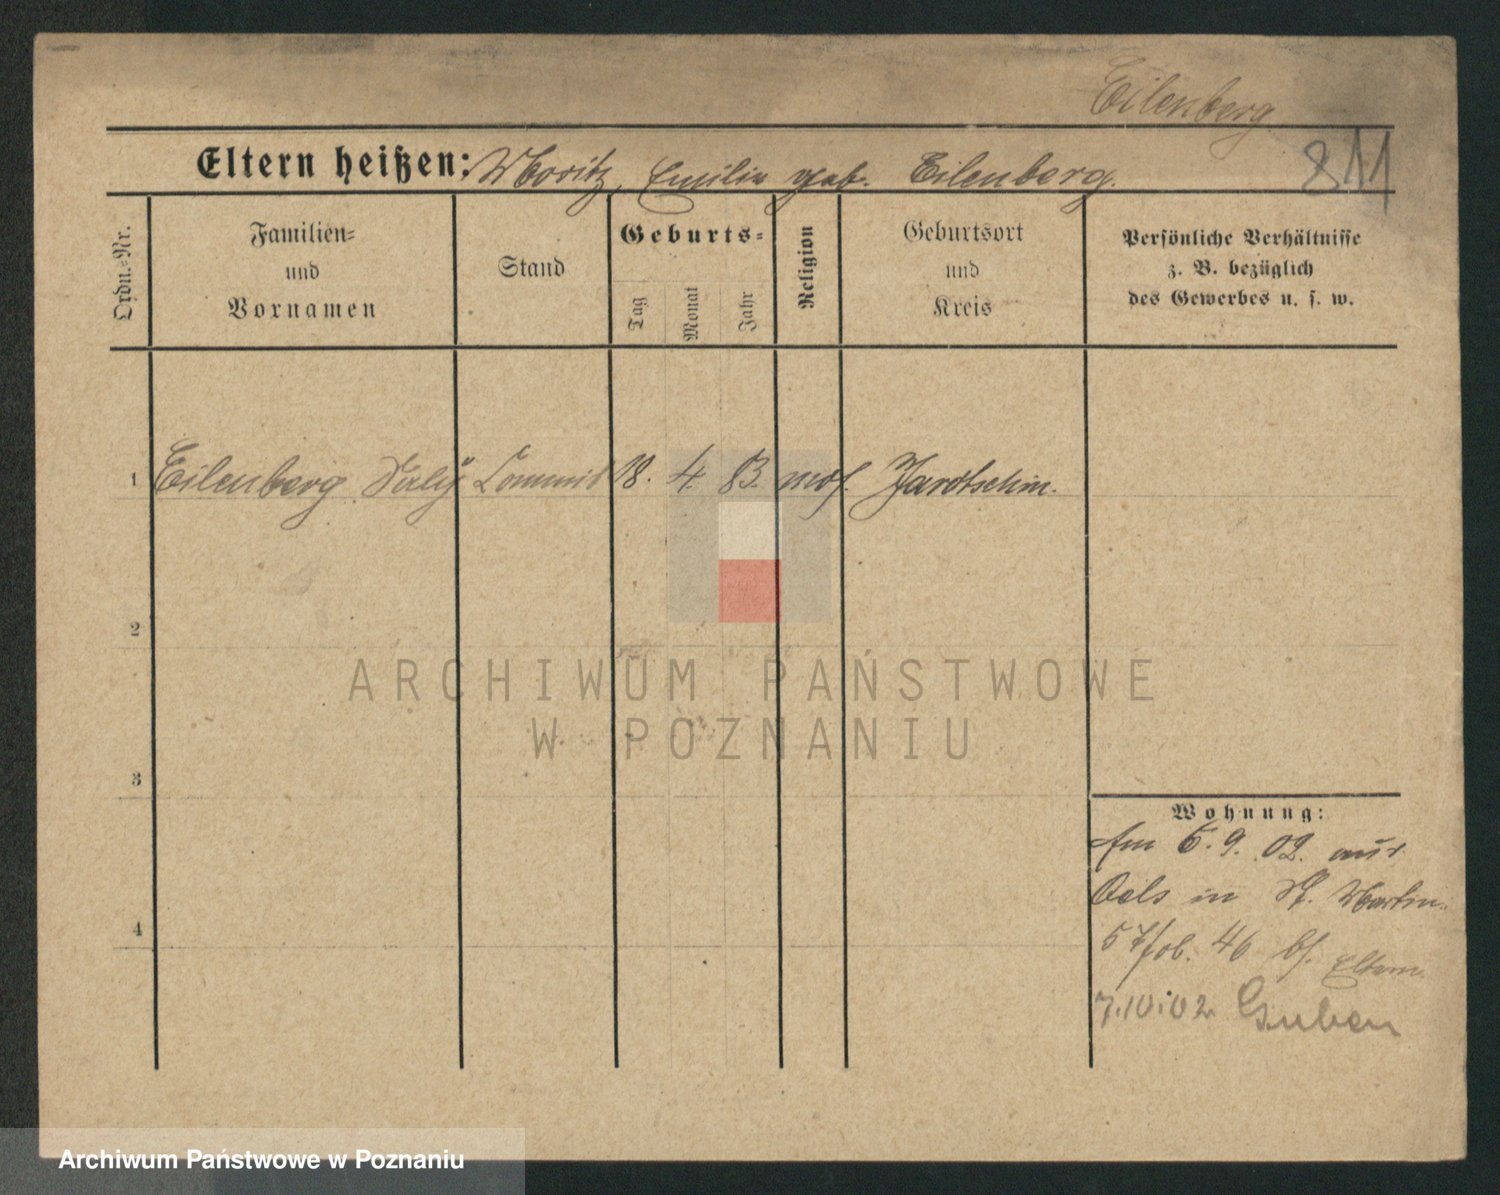 Eilenberg
Eltern heißen: Moritz, Emilie geb. Eilenberg.
811
Ordn.-Nr.
Familien-
und
Vornamen
Stand
Geburts-
Tag
Monat
Jahr
Religion
Geburtsort
und
Kreis
Persönliche Verhältnisse
z. B. bezüglich
des Gewerbes u. s. w.
1 Eilenberg Commis 18. 4. 83. mos. Jarotschin.
2
3
4
Wohnung:
Am 6. 9. 02. aus
Oels in St. Martin
57 46 Eltern
7.10.02 Guben
ARCHIWUM PAŃSTWOWE
W POZNANIU
Archiwum Państwowe w Poznaniu